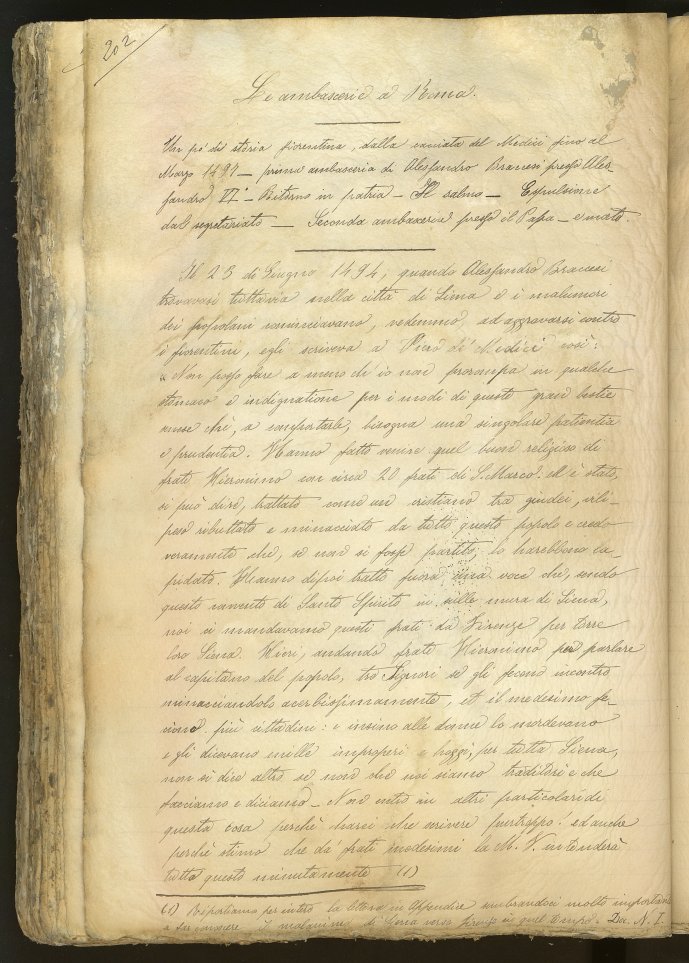 202
Le ambascerie a Roma.
Un po' di storia fiorentina, dalla cacciata del Medici fino al
Marzo 1497 — prima ambasceria di Alessandro Braccesi presso Ales-
sandro VI° — Ritorno in patria — Il salmo — Espulsione
dal segretariato — Seconda ambasceria presso il Papa — e morte.
Il 23 di Giugno 1494, quando Alessandro Braccesi
trovavasi tuttavia nella città di Siena e i malumori
dei popolani cominciavano, vedemmo, ad aggravarsi contro
i fiorentini, egli scriveva a Piero de' Medici così:
"Non posso fare a meno ch'io non prorompa in qualche
stomaco e indignatione per i modi di queste gran bestie
 che, a comportarle, bisogna una singolare patientia
e prudentia. Hanno fatto venire quel buon religioso di
frate Hieronimo con circa 20 frati di S. Marco: ed è stato,
si può dire, trattato come un cristiano tra giudei, vili-
peso ributtato e minacciato da tutto questo popolo e credo
veramente che, se non si fosse partito, lo harebbono la-
pidato. Hanno dipoi tratto fuora una voce che, sendo
questo convento di Santo Spirito in sulle mura di Siena,
noi ci mandavamo questi frati da Firenze per torre
loro Siena. Hieri, andando frate Hieronimo per parlare
al capitano del popolo, tre Signori se gli fecono incontro
minacciandolo acerbissimamente, et il medesimo fe-
ciono più cittadini: e insino alle donne lo mordevano
e gli dicevano mille improperi e hoggi, per tutta Siena,
non si dice altro se non che noi siamo traditori e che
facciamo e diciamo — Non entro in altri particolari di
questa cosa perchè harei che scrivere purtroppo! ed anche
perchè stimo che da' frati medesimi la M. V. intenderà
tutto questo minutamente (1)
(1) Riportiamo per intero la lettera in Appendice sembrandoci molto importante
a far conoscere il malanimo di Siena verso Firenze in quel tempo. Doc. N. I.